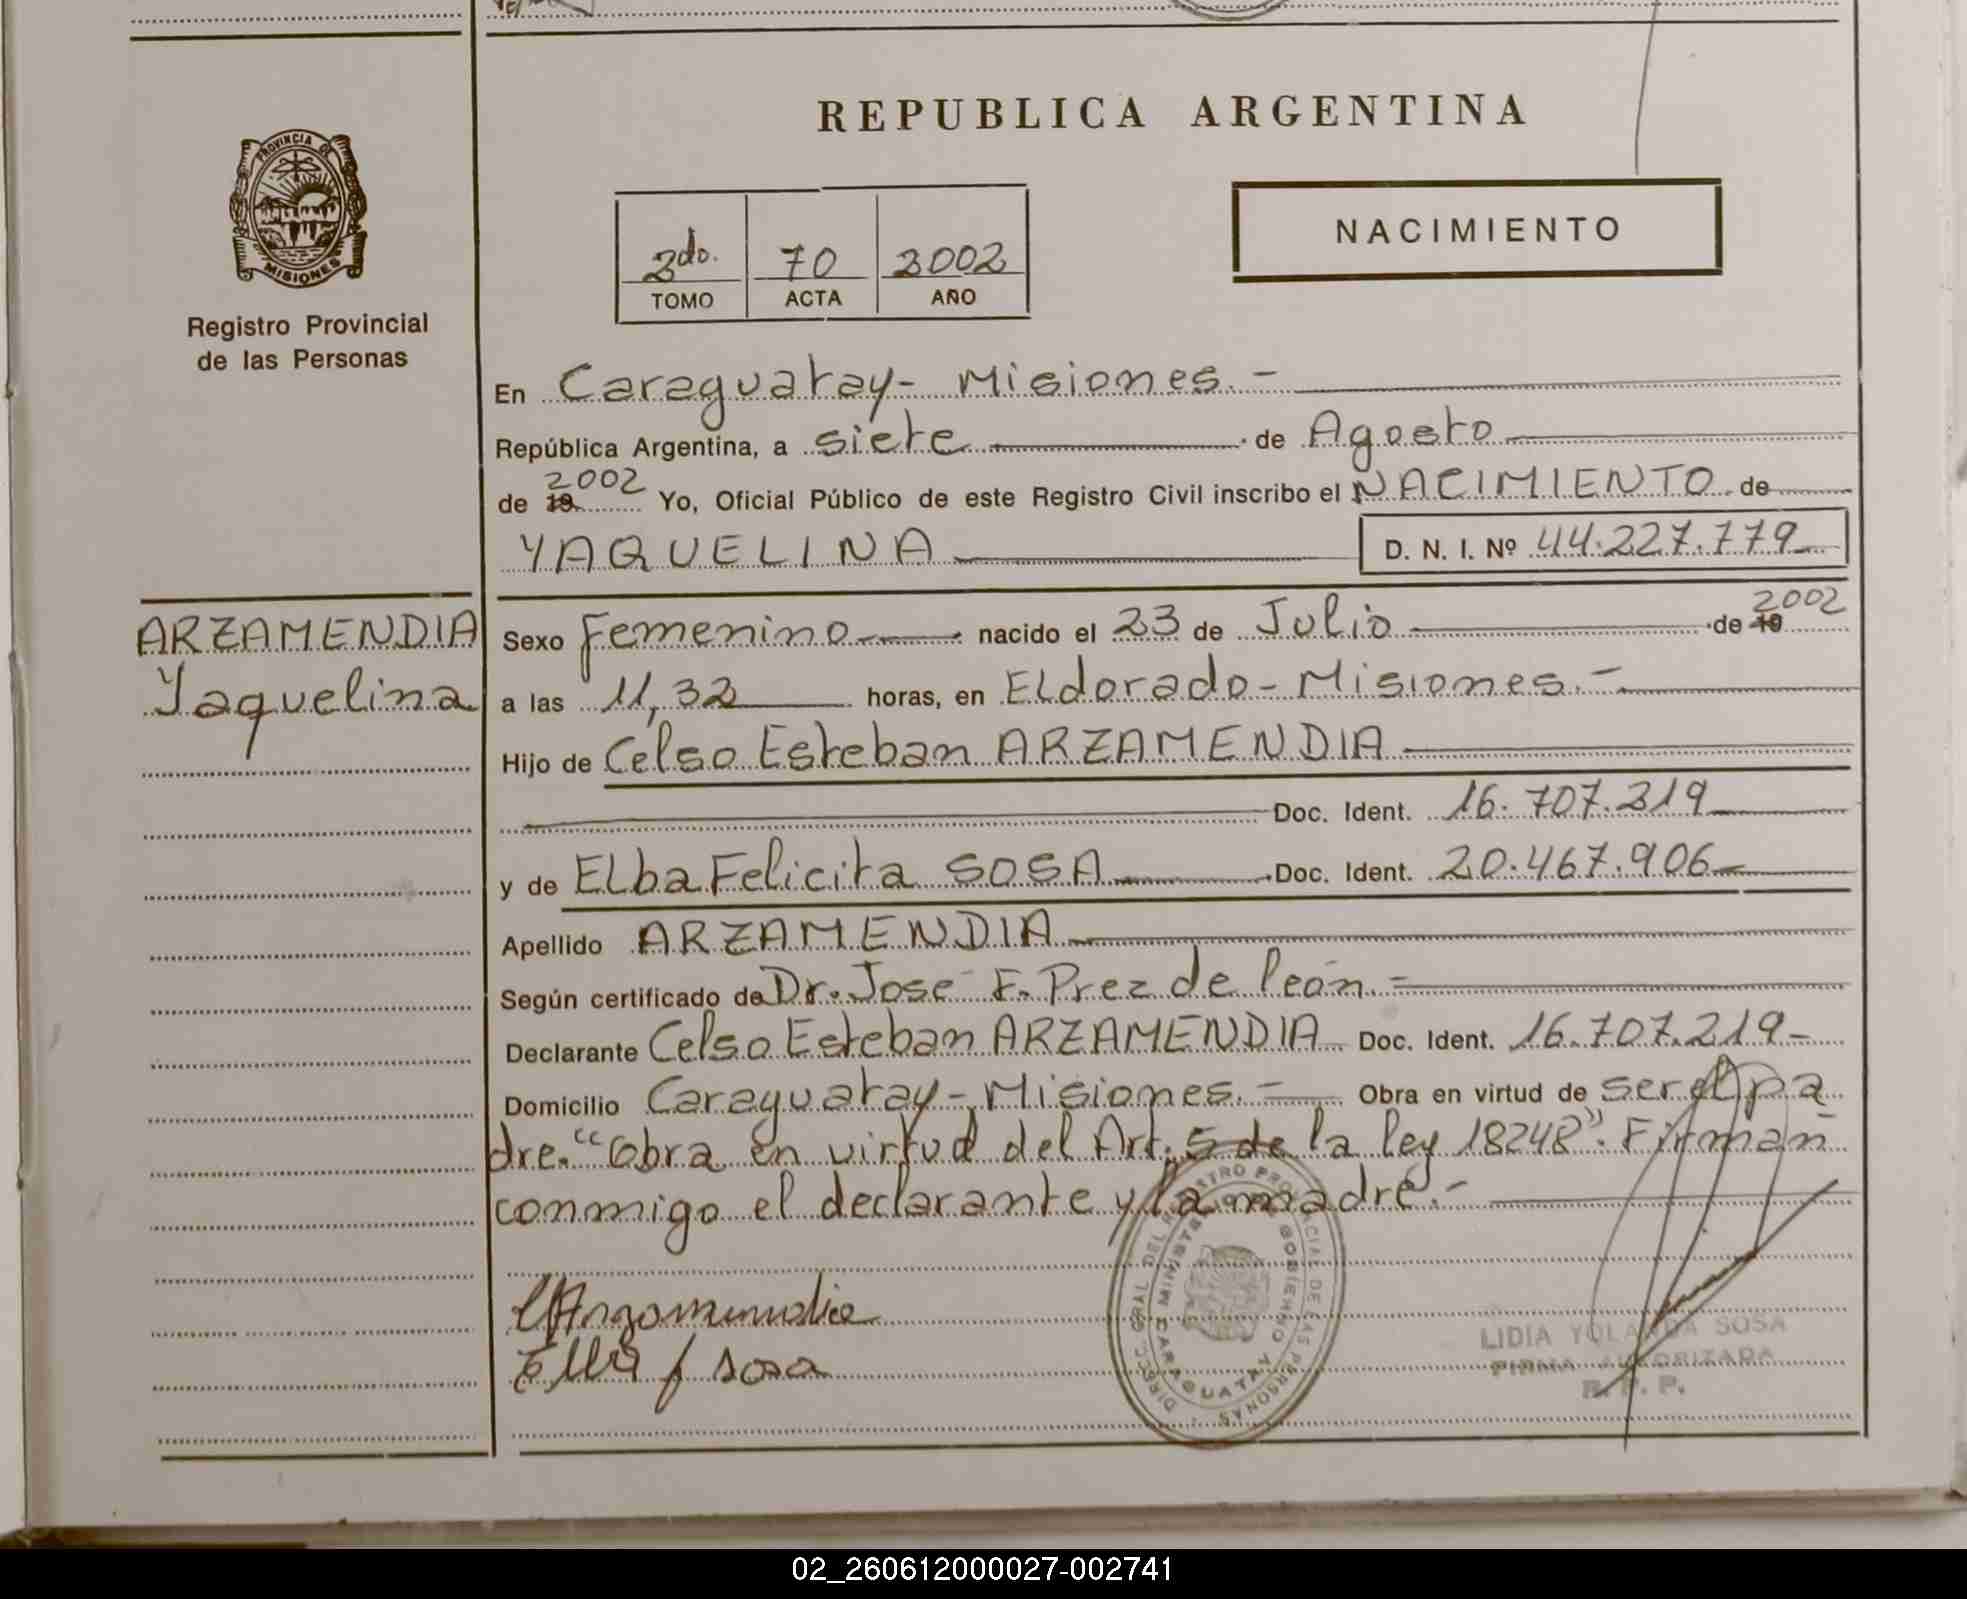 REPUBLICA ARGENTINA
PROVINCIA DE
MISIONES
Registro Provincial
de las Personas
2do. 70 2002
TOMO ACTA AÑO
NACIMIENTO
En Caraguatay - Misiones. -
República Argentina, a siete de Agosto
de 19 2002 Yo, Oficial Público de este Registro Civil inscribo el NACIMIENTO de
YAQUELINA D. N. I. Nº 44.227.779
ARZAMENDIA
Yaquelina
Sexo Femenino nacido el 23 de Julio de 19 2002
a las 11,32 horas, en ELdorado - Misiones. -
Hijo de Celso Esteban ARZAMENDIA
Doc. Ident. 16.707.219
y de ELba Felicita SOSA Doc. Ident. 20.467.906
Apellido ARZAMENDIA
Según certificado de Dr. Jose F. Prez de león. =
Declarante Celso Esteban ARZAMENDIA Doc. Ident. 16.707.219 -
Domicilio Caraguatay - Misiones. - Obra en virtud de ser el pa
dre. "Obra en virtud del Art. 5 de la ley 18248". Firman
conmigo el declarante y la madre. -
CArzamendia
Elba f sosa
DIRECC. GRAL. DEL REGISTRO PROVINCIAL DE LAS PERSONAS
MINISTERIO DE GOBIERNO
CARAGUATAY
LIDIA YOLANDA SOSA
FIRMA AUTORIZADA
R. P. P.
02_260612000027-002741